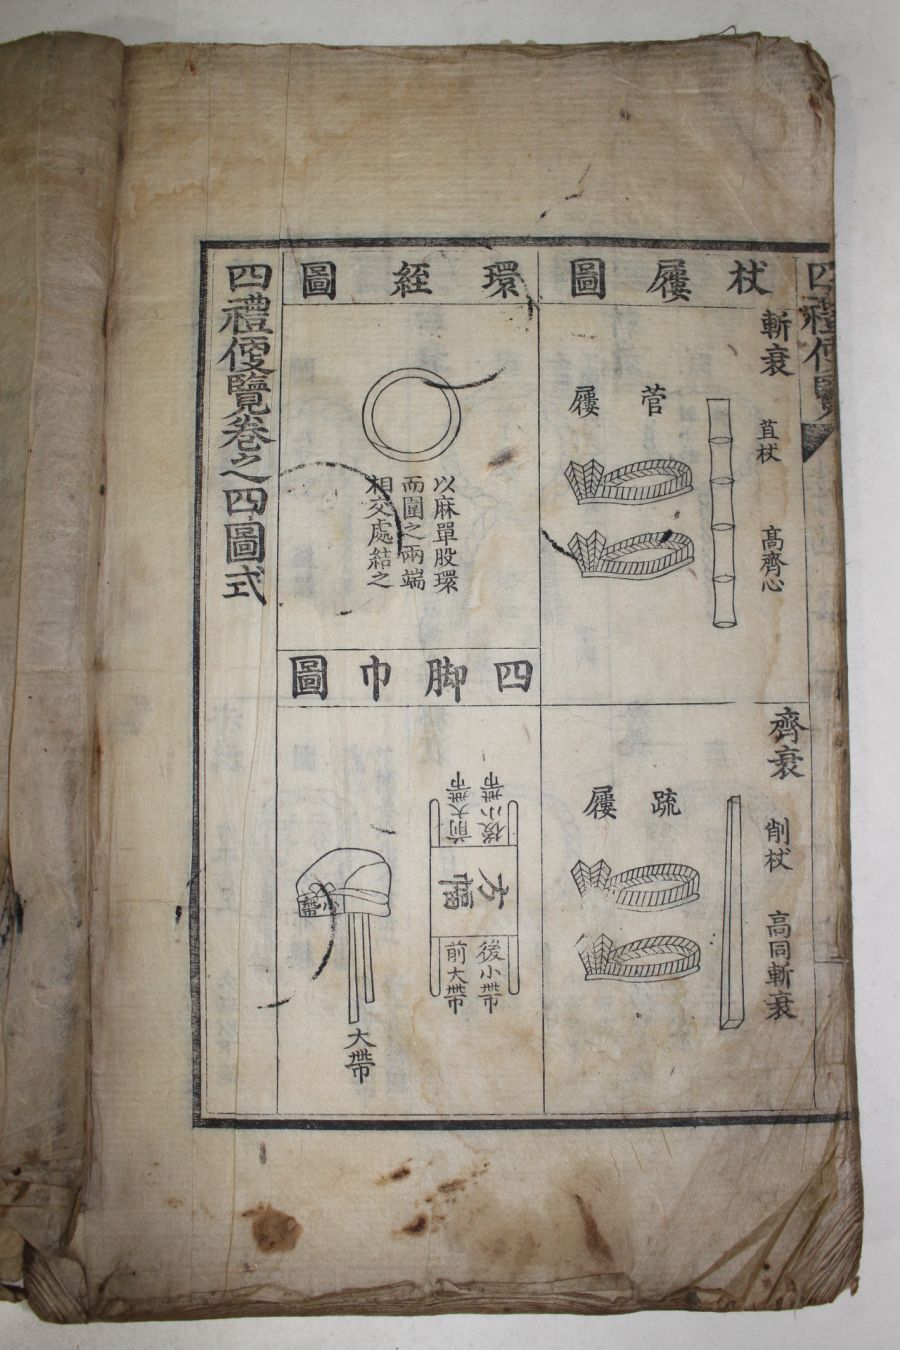 四禮便覽
杖屨圖
斬衰
苴杖
高齊心
菅屨
齊衰
削杖
高同斬衰
疏屨
環絰圖
以麻單股環
而圍之兩端
相交處結之
四脚巾圖
後小帶
前大帶
方幅
後小帶
前大帶
大帶
四禮便覽卷之四圖式